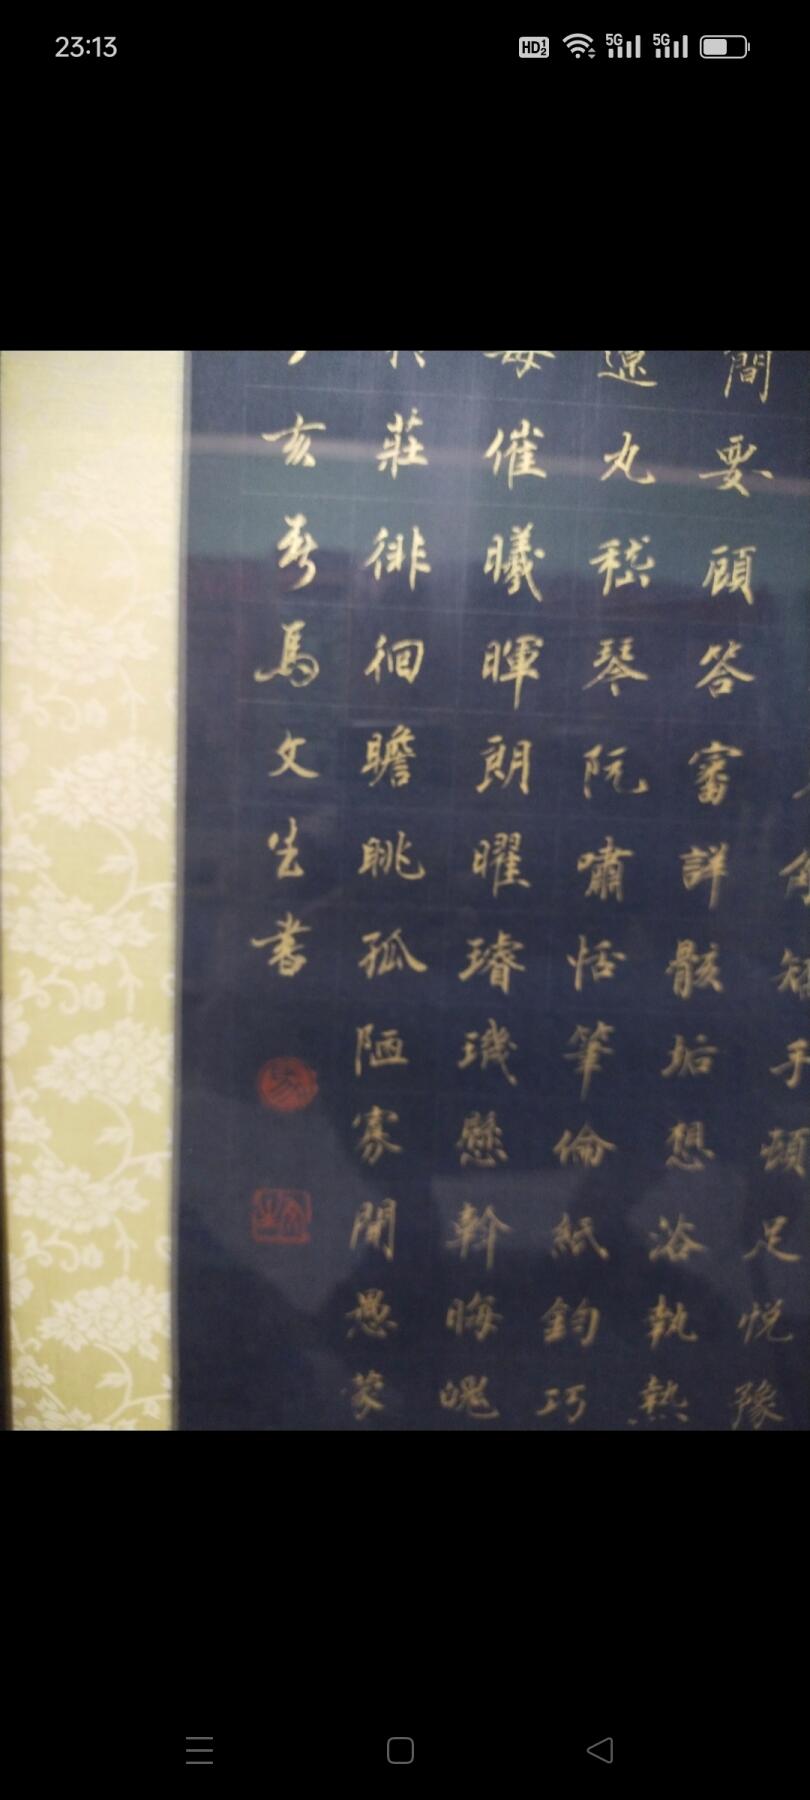 23:13
HD 5G 5G
手頓足悅豫
簡要顧答審詳骸垢想浴執熱
遼丸嵇琴阮嘯恬筆倫紙鈞巧
每催曦暉朗曜璿璣懸斡晦魄
莊徘徊瞻眺孤陋寡聞愚蒙
亥春馬文生書